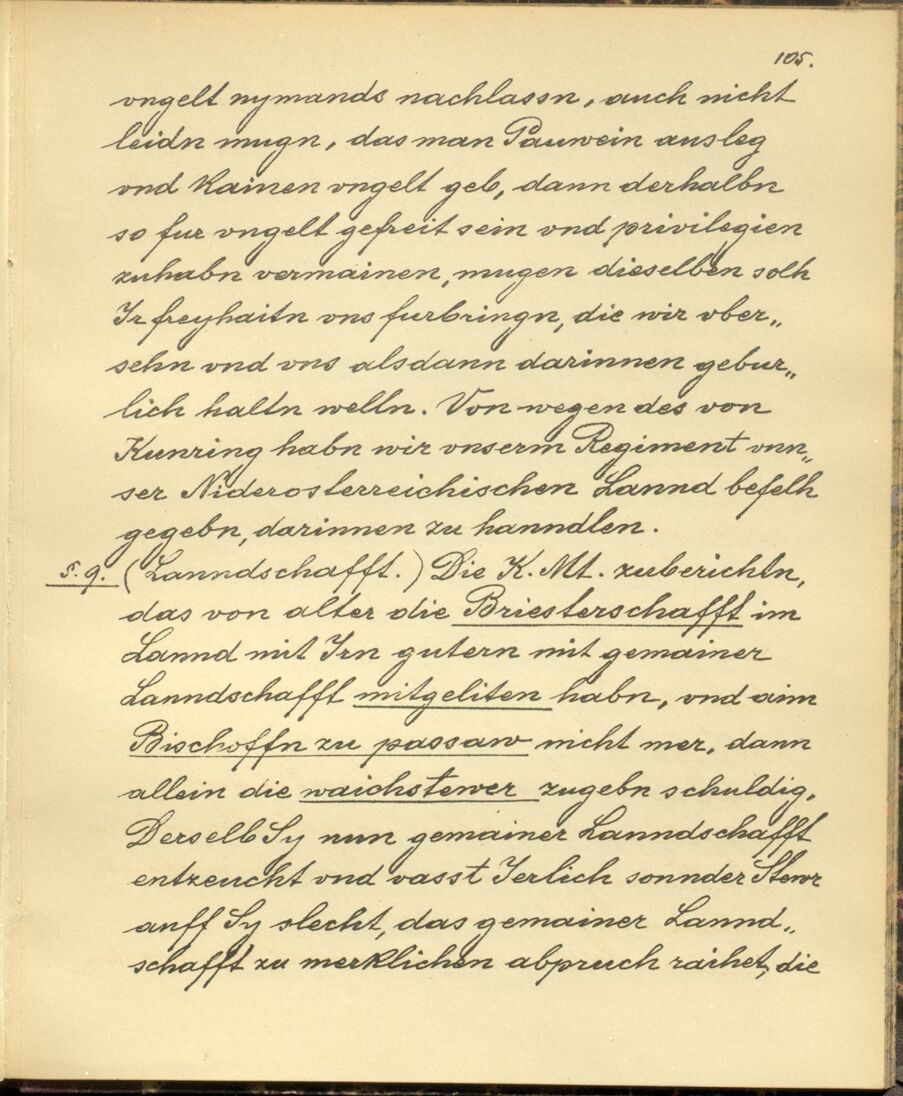 105.
vngelt nymands nachlassn, auch nicht
leidn mugn, das man Pauwein ausleg
vnd Kainen vngelt geb, dann derhalbn
so fur vngelt gefreit sein vnd privilegien
zuhabn vermainen, mugen dieselben solh
Ir freyhaitn vns furbringn, die wir vber„
sehn vnd vns alsdann darinnen gebur„
lich haltn welln. Von wegen des von
Kunring habn wir vnserm Regiment vnn„
ser Niderosterreichischen Lannd befelh
gegebn, darinnen zu hanndlen.
5. 9. (Lanndschafft.) Die K. Mt. zuberichtn,
das von alter die Briesterschafft im
Lannd mit Irn gutern mit gemainer
Lanndschafft mitgeliten habn, vnd aim
Bischoffn zu passaw nicht mer, dann
allein die waichstewer zugebn schuldig,
Derselb Sy nun gemainer Lanndschafft
entzeucht vnd vasst Ierlich sonnder Stewr
auff Sy slecht, das gemainer Lannd„
schafft zu merklichen abpruch raihet, die